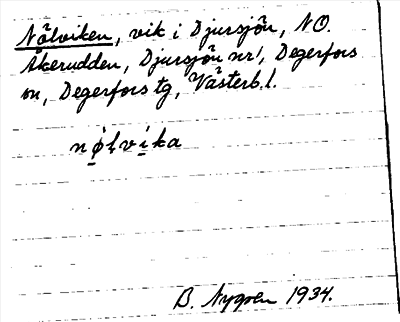 Nölviken, vik i Djursjön, NO.
Åkerudden, Djursjön nr 1, Degerfors
sn, Degerfors tg, Västerb. l.
nø̱ƚvi̱ka
B. Nygren 1934.